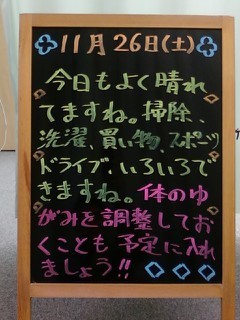 11月26日(土)
今日もよく晴れ
てますね。掃除、
洗濯、買い物、スポーツ
ドライブ、いろいろで
きますね。体のゆ
がみを調整してお
くことも予定に入れ
ましょう!!